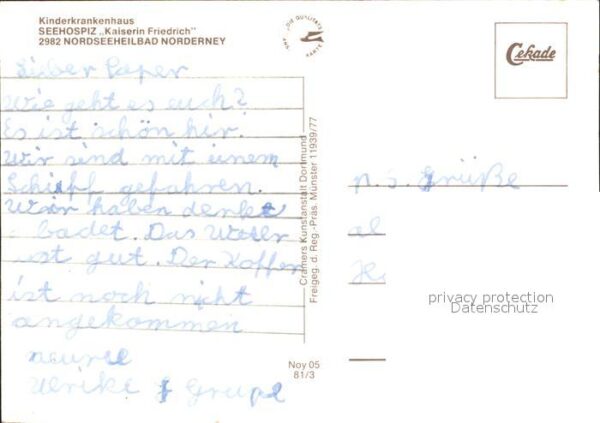 Kinderkrankenhaus
SEEHOSPIZ „Kaiserin Friedrich"
2982 NORDSEEHEILBAD NORDERNEY
DIE QUALITÄTS
KARTE
Cekade
Lieber Paper
Wie geht es euch?
Es ist schön hir.
Wir sind mit einem
Schiff gefahren.
Wir haben
badet. Das Weter
ist gut. Der Koffer
ist noch nicht
angekommen
Ulrike Grupe
Cramers Kunstanstalt Dortmund
Freigeg. d. Reg.-Präs. Münster 11939/77
Noy 05
81/3
p.s. Grüße
al
privacy protection
Datenschutz